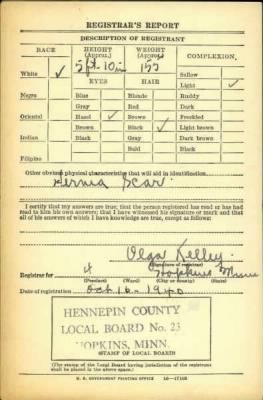 REGISTRAR'S REPORT
DESCRIPTION OF REGISTRANT
RACE HEIGHT (Approx.) WEIGHT (Approx.) COMPLEXION
5 ft. 10 in 155
White ✓ EYES HAIR Sallow
Light ✓
Negro Blue Blonde Ruddy
Gray Red Dark
Oriental Hazel ✓ Brown Freckled
Brown Black ✓ Light brown
Indian Black Gray Dark brown
Bald Black
Filipino
Other obvious physical characteristics that will aid in identification
Hernia Scar
I certify that my answers are true; that the person registered has read or has had
read to him his own answers; that I have witnessed his signature or mark and that
all of his answers of which I have knowledge are true, except as follows:
Olga Kelley
(Signature of registrar)
Registrar for 4 Hopkins Minn
(Precinct) (Ward) (City or county) (State)
Date of registration Oct. 16 - 1940
HENNEPIN COUNTY
LOCAL BOARD No. 23
HOPKINS, MINN.
(STAMP OF LOCAL BOARD)
(The stamp of the Local Board having jurisdiction of the registrant
shall be placed in the above space.)
U. S. GOVERNMENT PRINTING OFFICE 16—17105